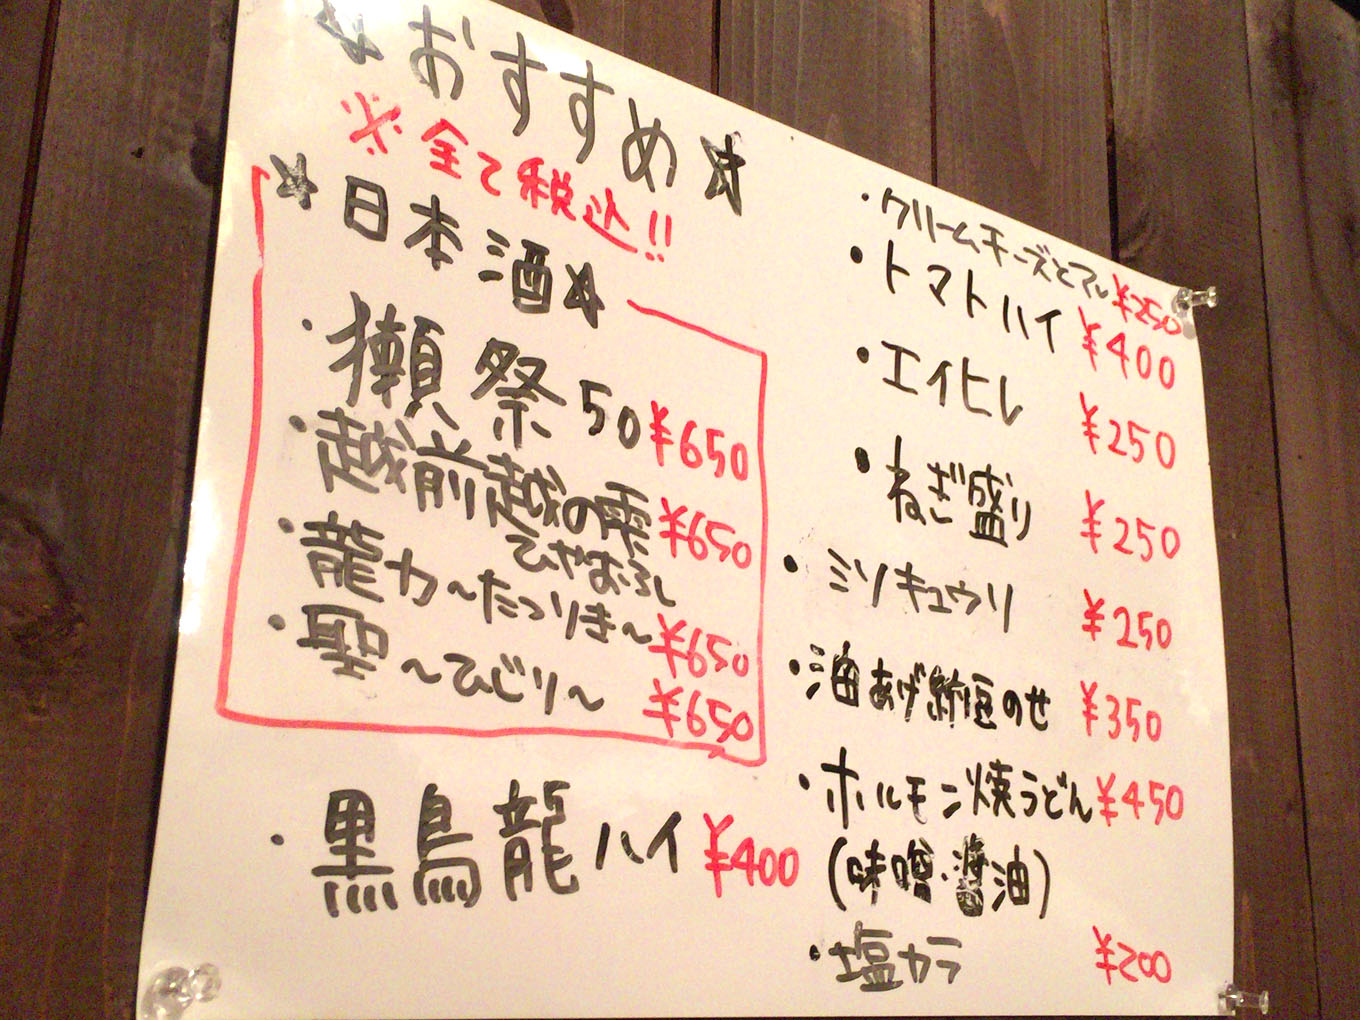 ☆おすすめ☆
※全て税込!!
☆日本酒☆
・獺祭50 ¥650
・越前越の雫 ¥650
ひやおろし
・龍力〜たつりき〜 ¥650
・聖〜ひじり〜 ¥650
・黒烏龍ハイ ¥400
・クリームチーズとマル ¥250
・トマトハイ ¥400
・エイヒレ ¥250
・ねぎ盛り ¥250
・ミソキュウリ ¥250
・油あげ納豆のせ ¥350
・ホルモン焼うどん ¥450
(味噌・醤油)
・塩カラ ¥200